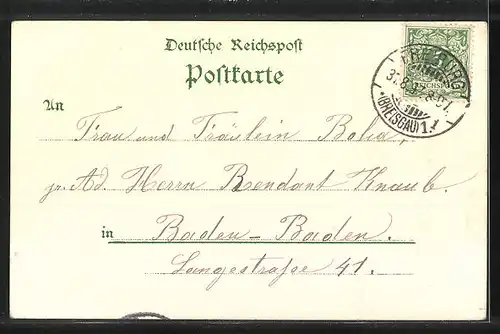 Deutsche Reichspost
Postkarte
FREIBURG
(BREISGAU) 1.
An
Frau und Fräulein Bolia,
pr. Ad. Herrn Rendant Knaub.
in Baden-Baden.
Langestraße 41.